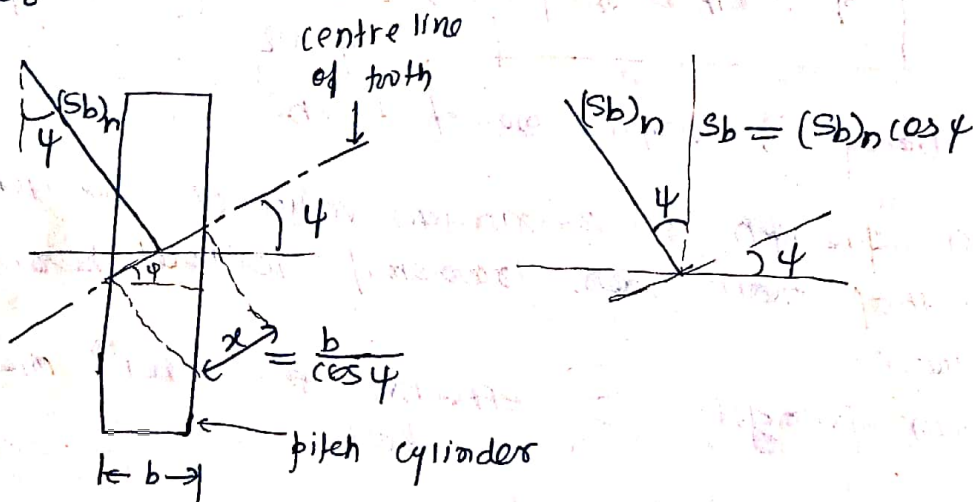 centre line
of tooth
(Sb)n
ψ
ψ
φ
x = b/cos ψ
pitch cylinder
b
(Sb)n
Sb = (Sb)n cos ψ
ψ
ψ